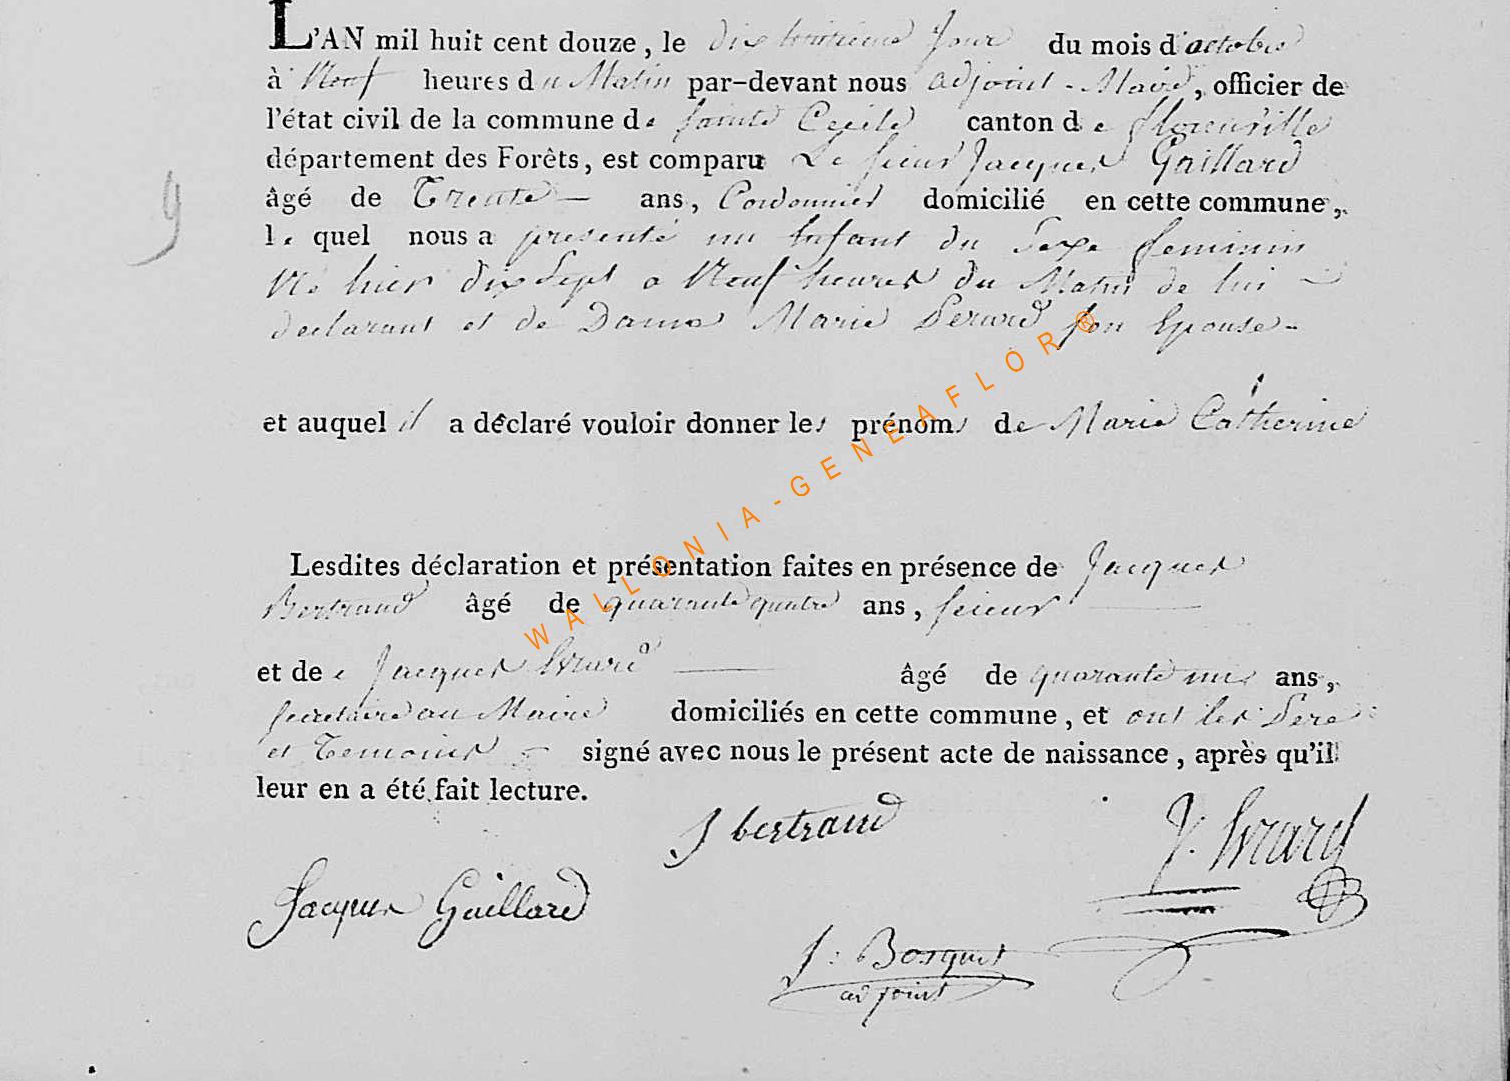 L'AN mil huit cent douze, le dix huitieme Jour du mois d'octobre
à Neuf heures du Matin par-devant nous adjoint-Maire, officier de
l'état civil de la commune de sainte Cecile canton de florenville
département des Forêts, est comparu Le sieur Jacques Gaillard
âgé de Trente ans, Cordonnier domicilié en cette commune,
le quel nous a presenté un Enfant du Sexe feminin
9
Né hier dix Sept a Neuf heures du Matin de lui
declarant et de Dame Marie son Epouse
et auquel il a déclaré vouloir donner les prénoms de Marie Catherine
Lesdites déclaration et présentation faites en présence de Jacques
Bertrand âgé de quarante quatre ans,
et de Jacques Evrard âgé de quarante un ans,
secretaire au Maire domiciliés en cette commune, et ont les Pere
et Temoins signé avec nous le présent acte de naissance, après qu'il
leur en a été fait lecture.
J bertrand
J. Evrard
Jacques Gaillard
J: Bosquet
adjoint
WALLONIA-GENEAFLOR®